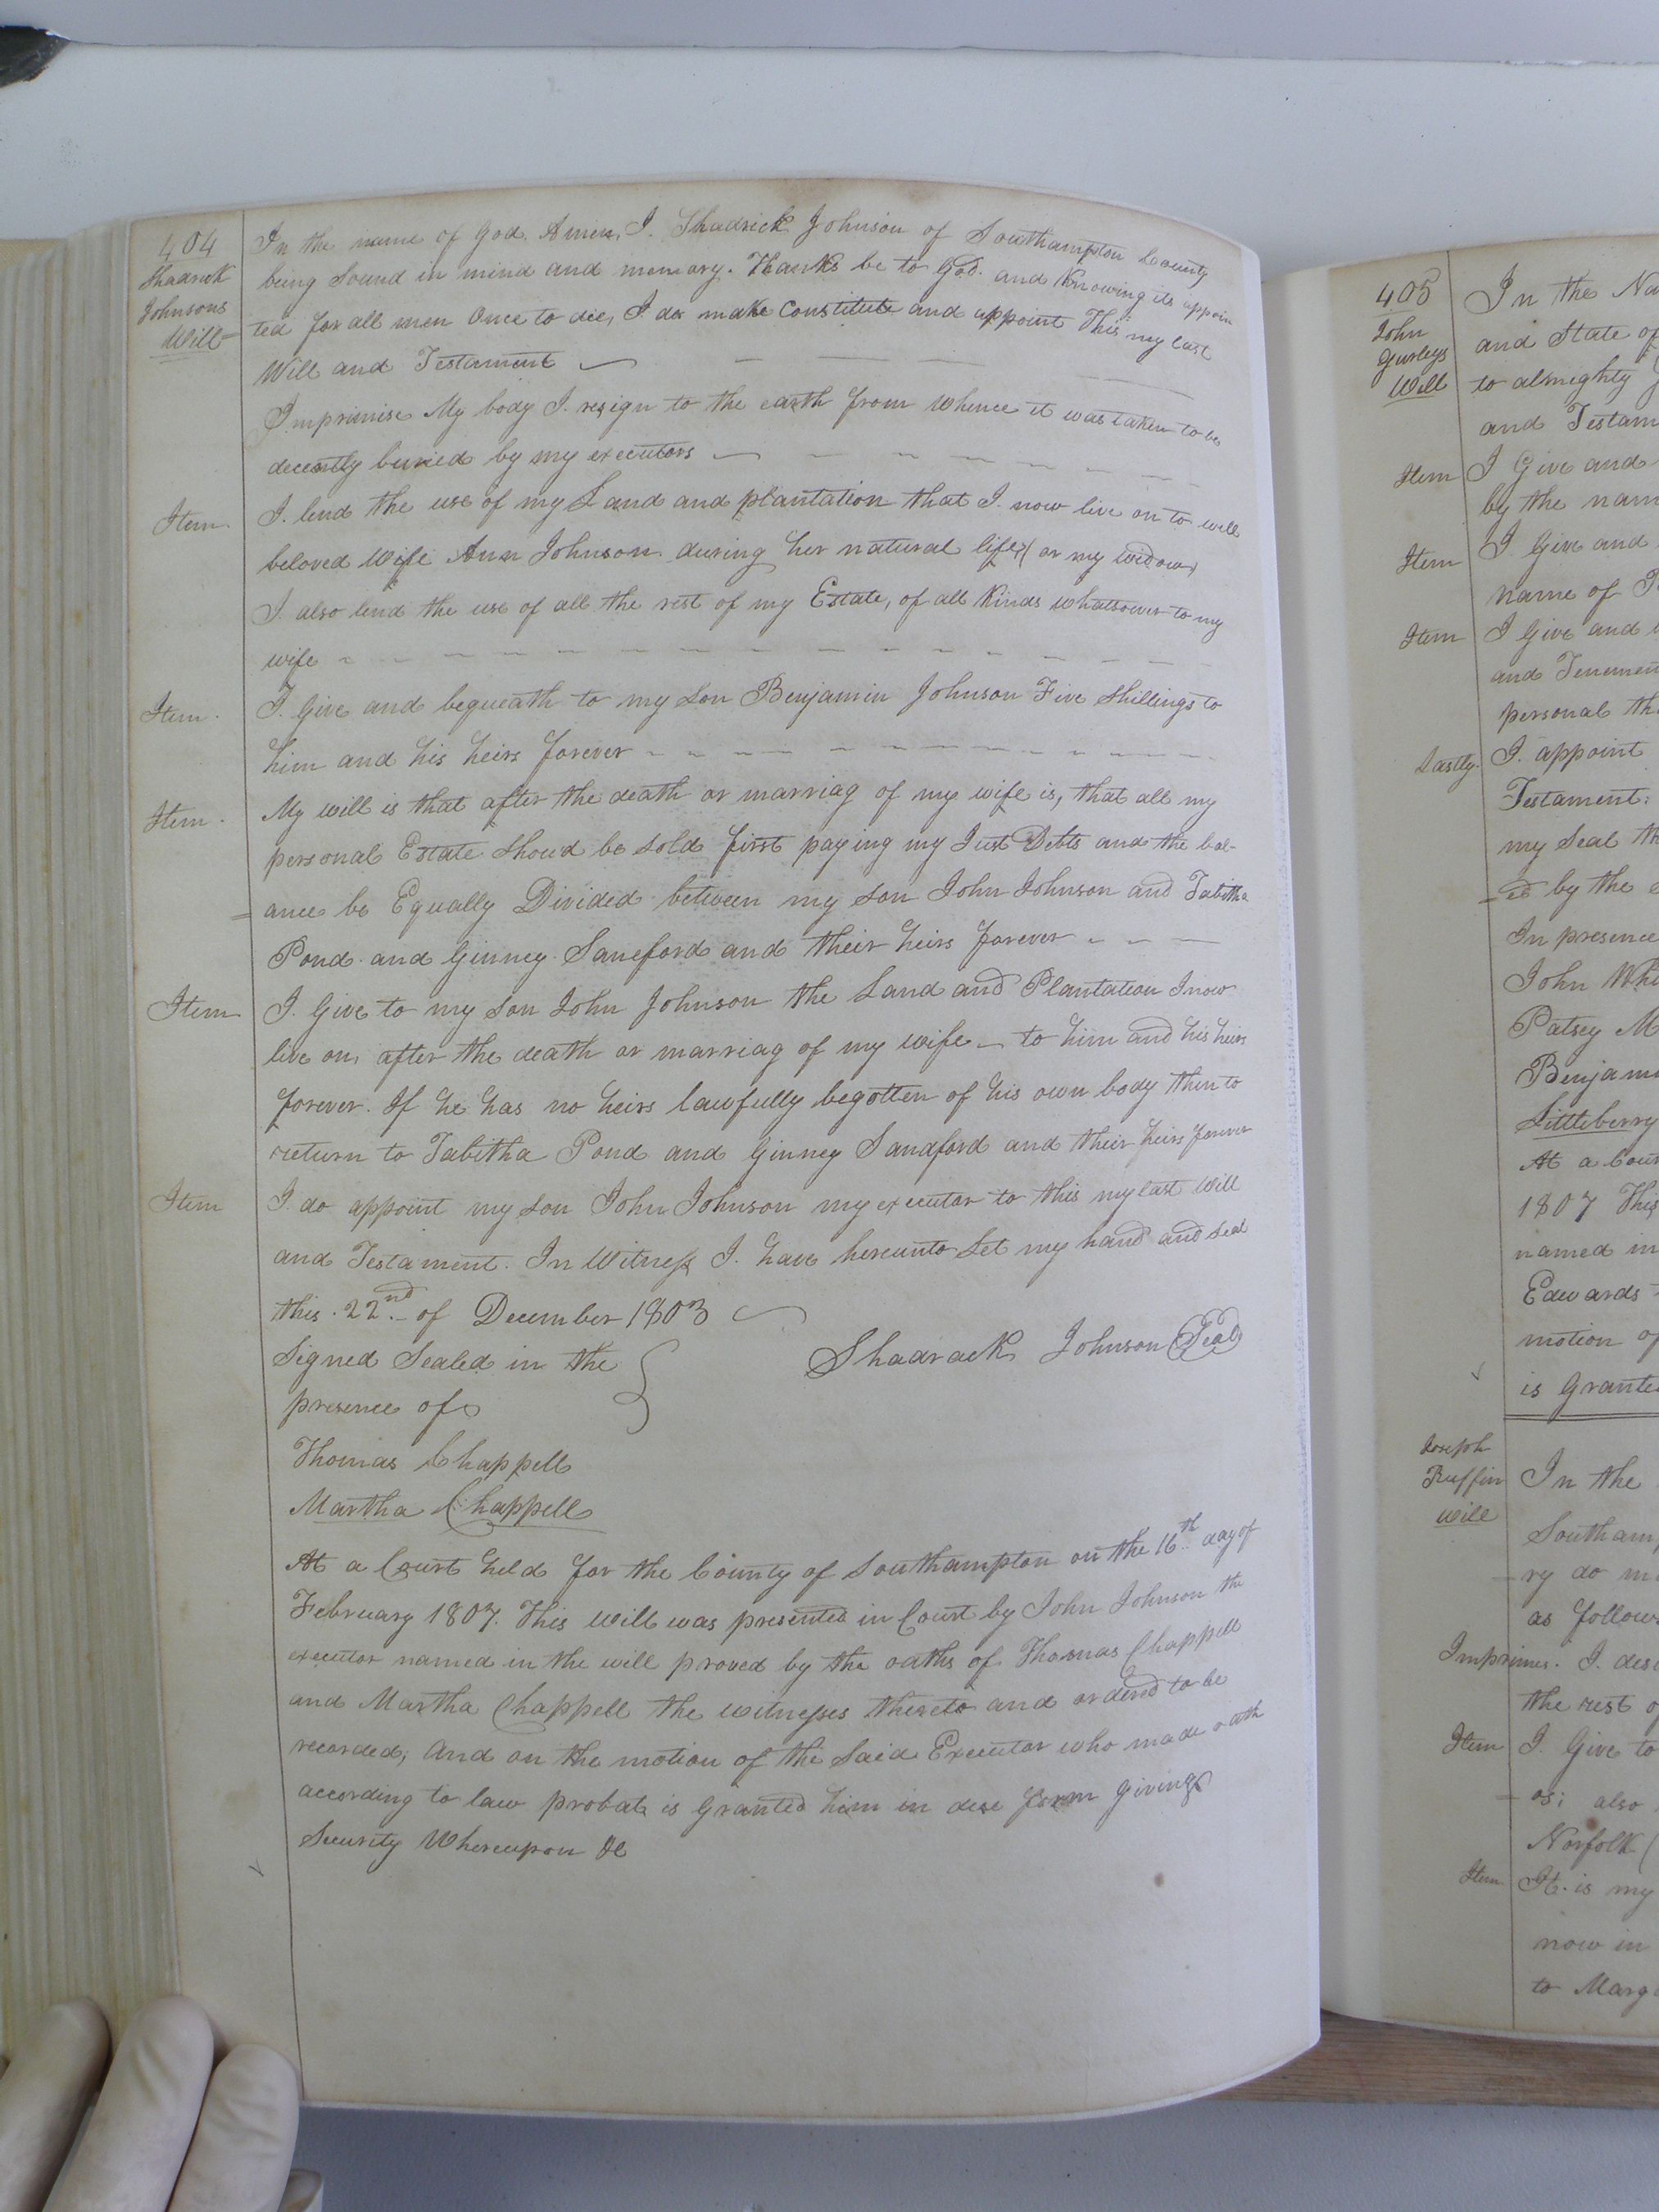 404
Shadrick
Johnsons
Will
In the name of God, Amen, I. Shadrick Johnson of Southampton County
being Sound in mind and memory. Thanks be to God. and Knowing its appoin
ted for all men Once to die, I do make Constitute and appoint This my last
Will and Testament
Imprimise My body I. resign to the earth from whence it was taken to be
decently buried by my executors
Item. I. lend the use of my Land and plantation that I. now live on to well
beloved wife Ann Johnson. during her natural life, (or my widow)
I. also lend the use of all the rest of my Estate, of all Kinds whatsoever to my
wife
Item. I. Give and bequeath to my Son Benjamin Johnson Five Shillings to
him and his heirs forever
Item. My will is that after the death or marriag of my wife is, that all my
personal Estate Shoud be Sold first paying my Just Debts and the bal-
=ance be Equally Divided between my son John Johnson and Tabitha
Pond. and Ginney. Saneford and their heirs forever
Item I. Give to my Son John Johnson the Land and Plantation I now
live on, after the death or marriag of my wife - to him and his heirs
forever. If he has no heirs lawfully begotten of his own body then to
return to Tabitha Pond and Ginney Sandford and their heirs forever
Item I. do appoint my Son John Johnson my executor to this my last Will
and Testament. In Witness I. have hereunto Set my hand and Seal
this. 22nd. of December 1803
Signed Sealed in the
presence of
Shadrack Johnson (Seal)
Thomas Chappell
Martha Chappell
At a Court held for the County of Southampton on the 16th. day of
February 1807. This Will was presented in Court by John Johnson the
executor named in the will proved by the oaths of Thomas Chappell
and Martha Chappell the witnesses thereto and orderd to be
recorded, And on the motion of the Said Executor who made oath
according to law probate is Granted him in due form Giving
Security Whereupon &c
405
John
Gurleys
Will
In the Na
and State of
to almighty
and Testam
Item I Give and
by the nam
Item I Give and
name of
Item I Give and
and Tenemen
personal th
Lastly. I. appoint
Testament:
my Seal th
=ed by the
In presence
John Whi
Patsey M
Benjami
Littleberry
At a Cour
1807 This
named in
Edwards
motion of
is Grante
Joseph
Ruffin
Will
In the
Southam
-ry do m
as follow
Imprimes. I. des
the rest of
Item I. Give to
os; also
Norfolk (
Item It. is my
now in
to Marg